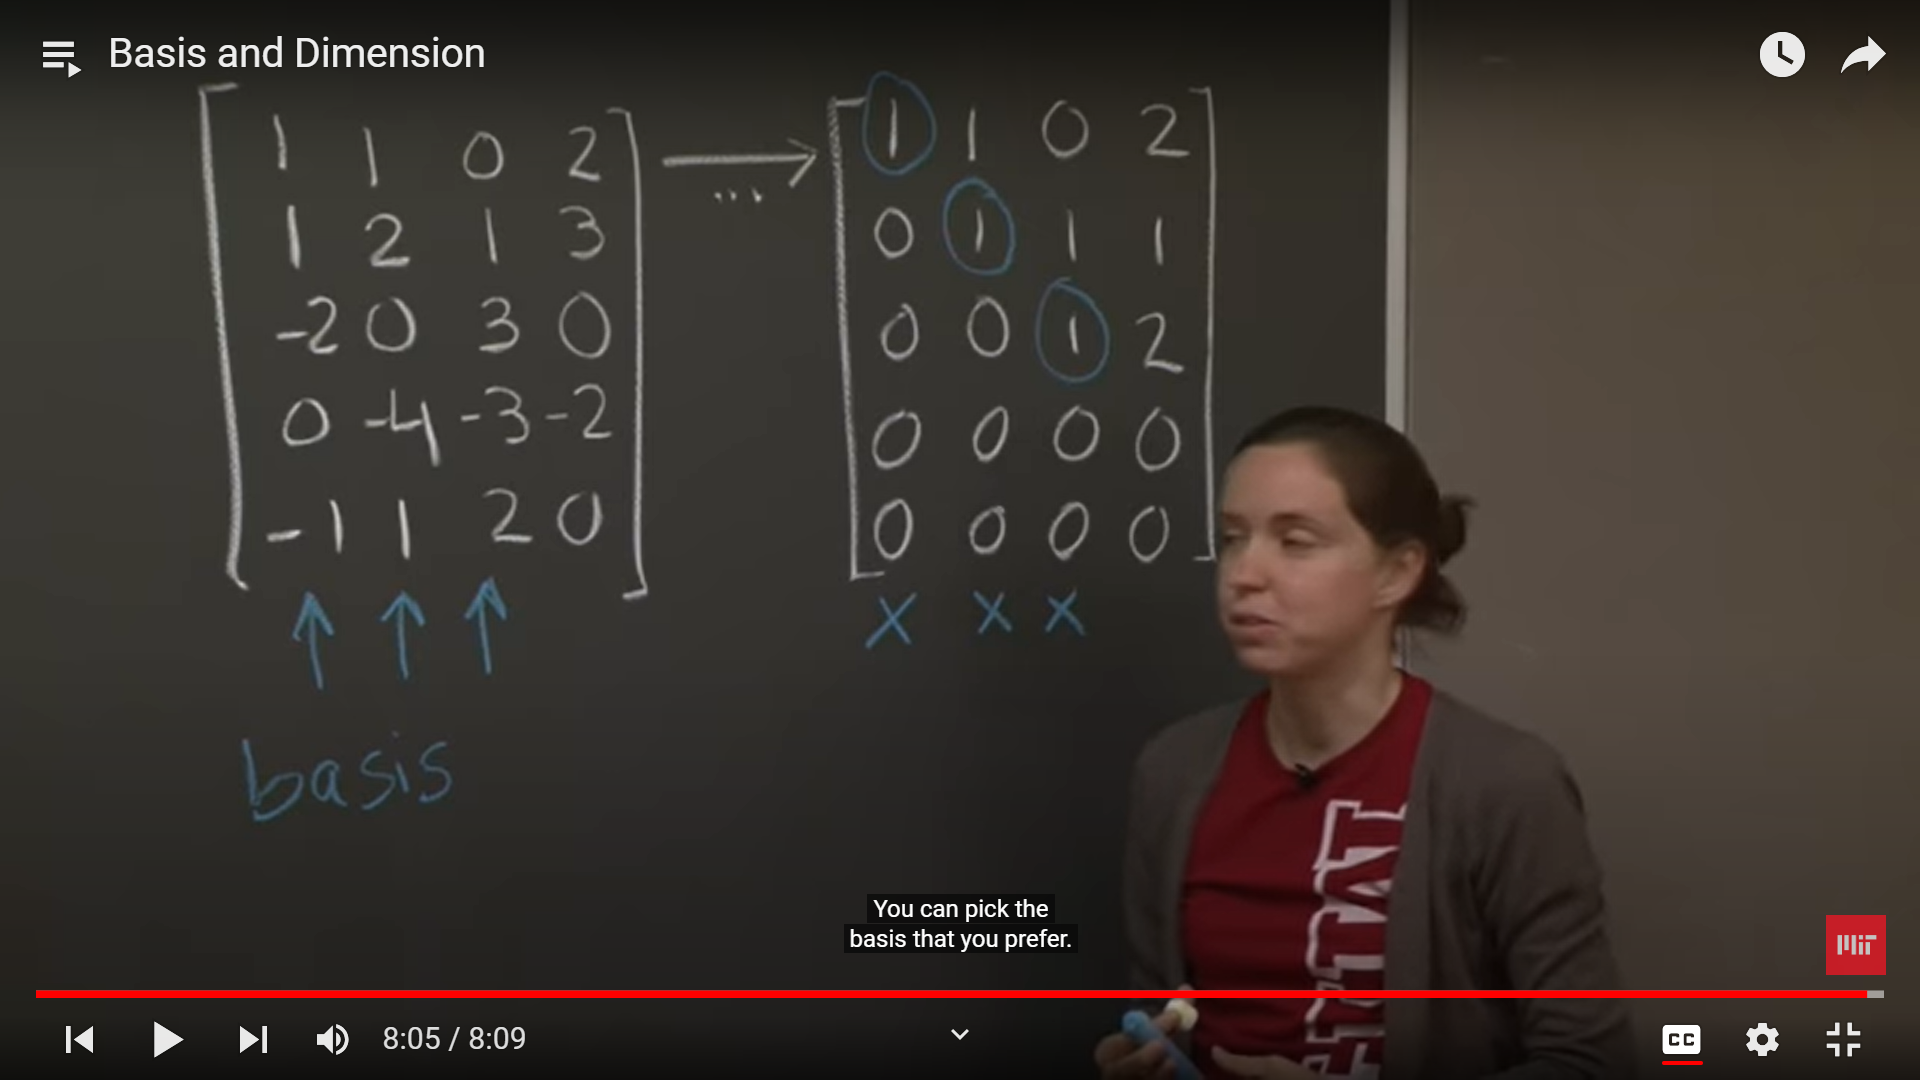 Basis and Dimension
1 1 0 2
1 2 1 3
-2 0 3 0
0 -4 -3 -2
-1 1 2 0
basis
...
1 1 0 2
0 1 1 1
0 0 1 2
0 0 0 0
0 0 0 0
X X X
You can pick the
basis that you prefer.
MIT
8:05 / 8:09
CC